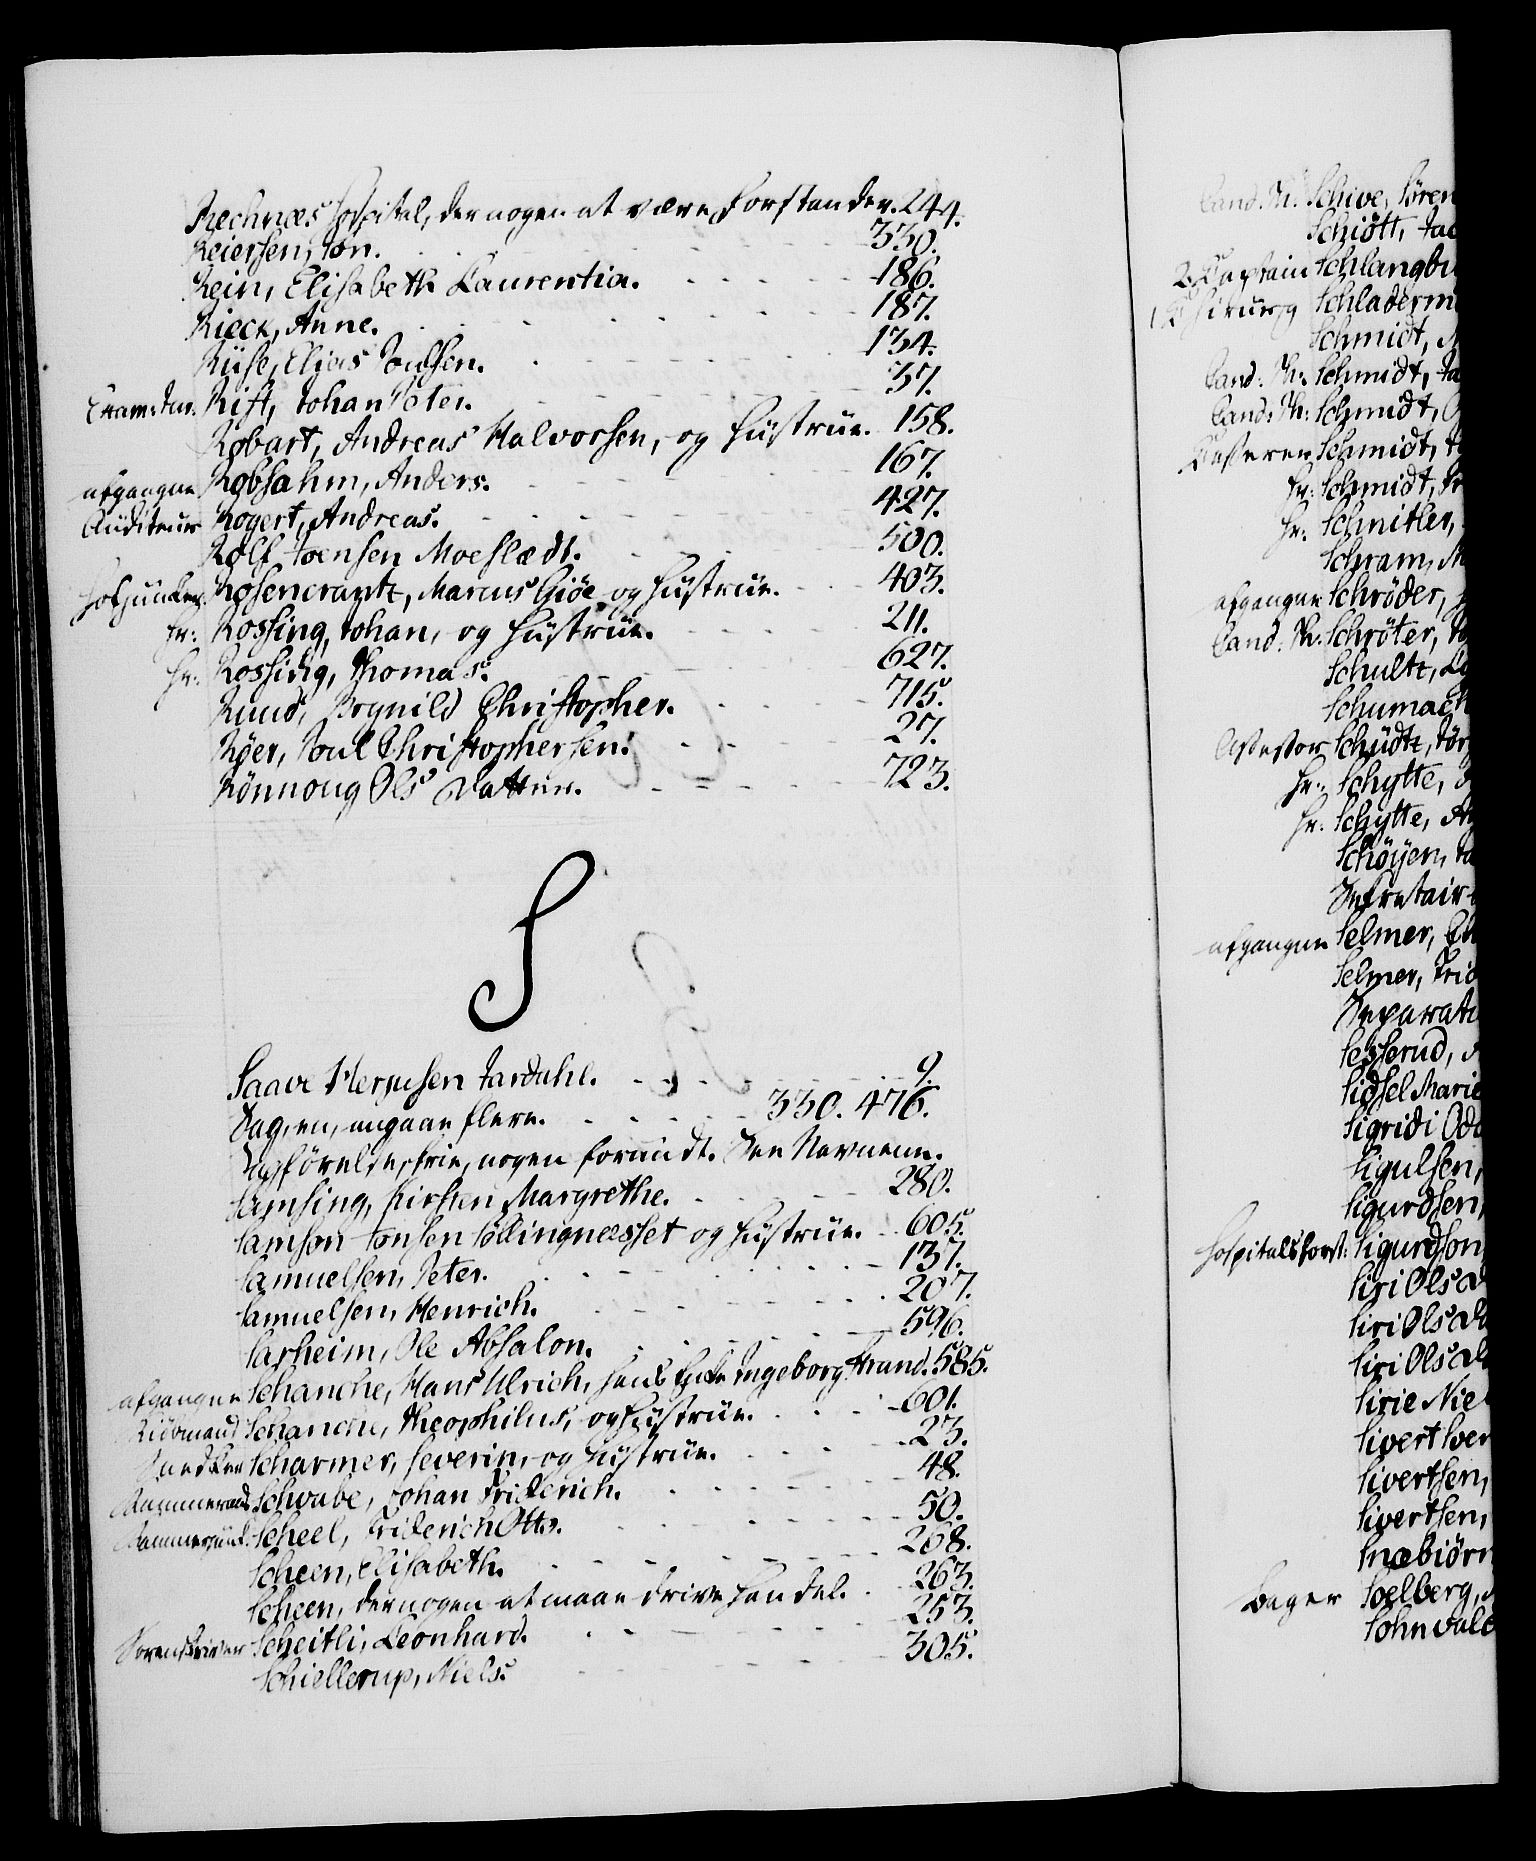 Rechnæs Hospital, der nogen at være Forstander. 244.
Reiersen, Jon. 330.
Rein, Elisabeth Laurentia. 186.
Rieck, Anne. 187.
Riise, Elias Poulsen. 134.
Exam: Jur: Rist, Johan Peter. 37.
Robart, Andreas Halvorsen, og Hustrue. 158.
afgangne Robsahm, Anders. 167.
Auditeur Rogert, Andreas. 427.
Rolf Joensen Moeslædt. 500.
Hofjunker Rosencrantz, Marcus Giöe og Hustrue. 403.
Hr: Rossing, Johan, og Hustrue. 211.
Hr: Rossing, Thomas. 627.
Ruud, Bognild Christopher. 715.
Röer, Poul Christophersen. 27.
Rönnoug Ols Datter. 723.
S
Saave Jardahl. 9.
Sag, en, angaaer flere. 330. 476.
Sagförelse, frie, nogen forundt. See Navnene.
Samsing, Kirsten Margrethe. 280.
Samson Jonsen Söllingnesset og Hustrue. 605.
Samuelsen, Peter. 137.
Samuelsen, Henrich. 207.
Sarheim, Ole Absalon. 596.
afgangne Schanche, Hans Ulrich, hans Enke Ingeborg Strand. 585.
Kiöbmand Schanche, Theophilus, og Hustrue. 601.
Snedker Scharmer, Severin, og Hustrue. 23.
Kammerraad Schwabe, Johan Friderich. 48.
Kammerjunk: Scheel, Friderich Otto. 50.
Scheen, Elisabeth. 268.
Scheen, der nogen at maae drive Handel. 263.
Sorenskriver Scheitli, Leonhard. 253.
Schiellerup, Niels. 305.
Cand. Th. Schive, Sören
Schiött, Jac
2. Captain Schlangbu
Chirurg Schladerm
Schmidt, M
Cand: Th: Schmidt, Ja
Cand: Th: Schmidt,
Casserer Schmidt,
Hr: Schmidt, Fr
Hr. Schnitler,
Schram, M
afgangne Schröder,
Cand: Th: Schröter, Jo
Schultz,
Schumach
Assessor Schüdtz, Jör
Hr: Schytte,
Hr: Schytte, A
Schöyen, Ja
Secretair
afgangne Selmer, Ch
Selmer, Frid
Separati
Sesserud,
Sidsel Marie
Sigridi Odd
Sigulsen,
Sigurdsen,
Hospitalsforst: Sigurdson
Siri Ols Da
Siri Ols Da
Siri Ols Da
Sirie Nie
Sivert Iver
Sivertsen,
Sivertsen,
Snæbiörn
Bager Soelberg,
Sohn vald